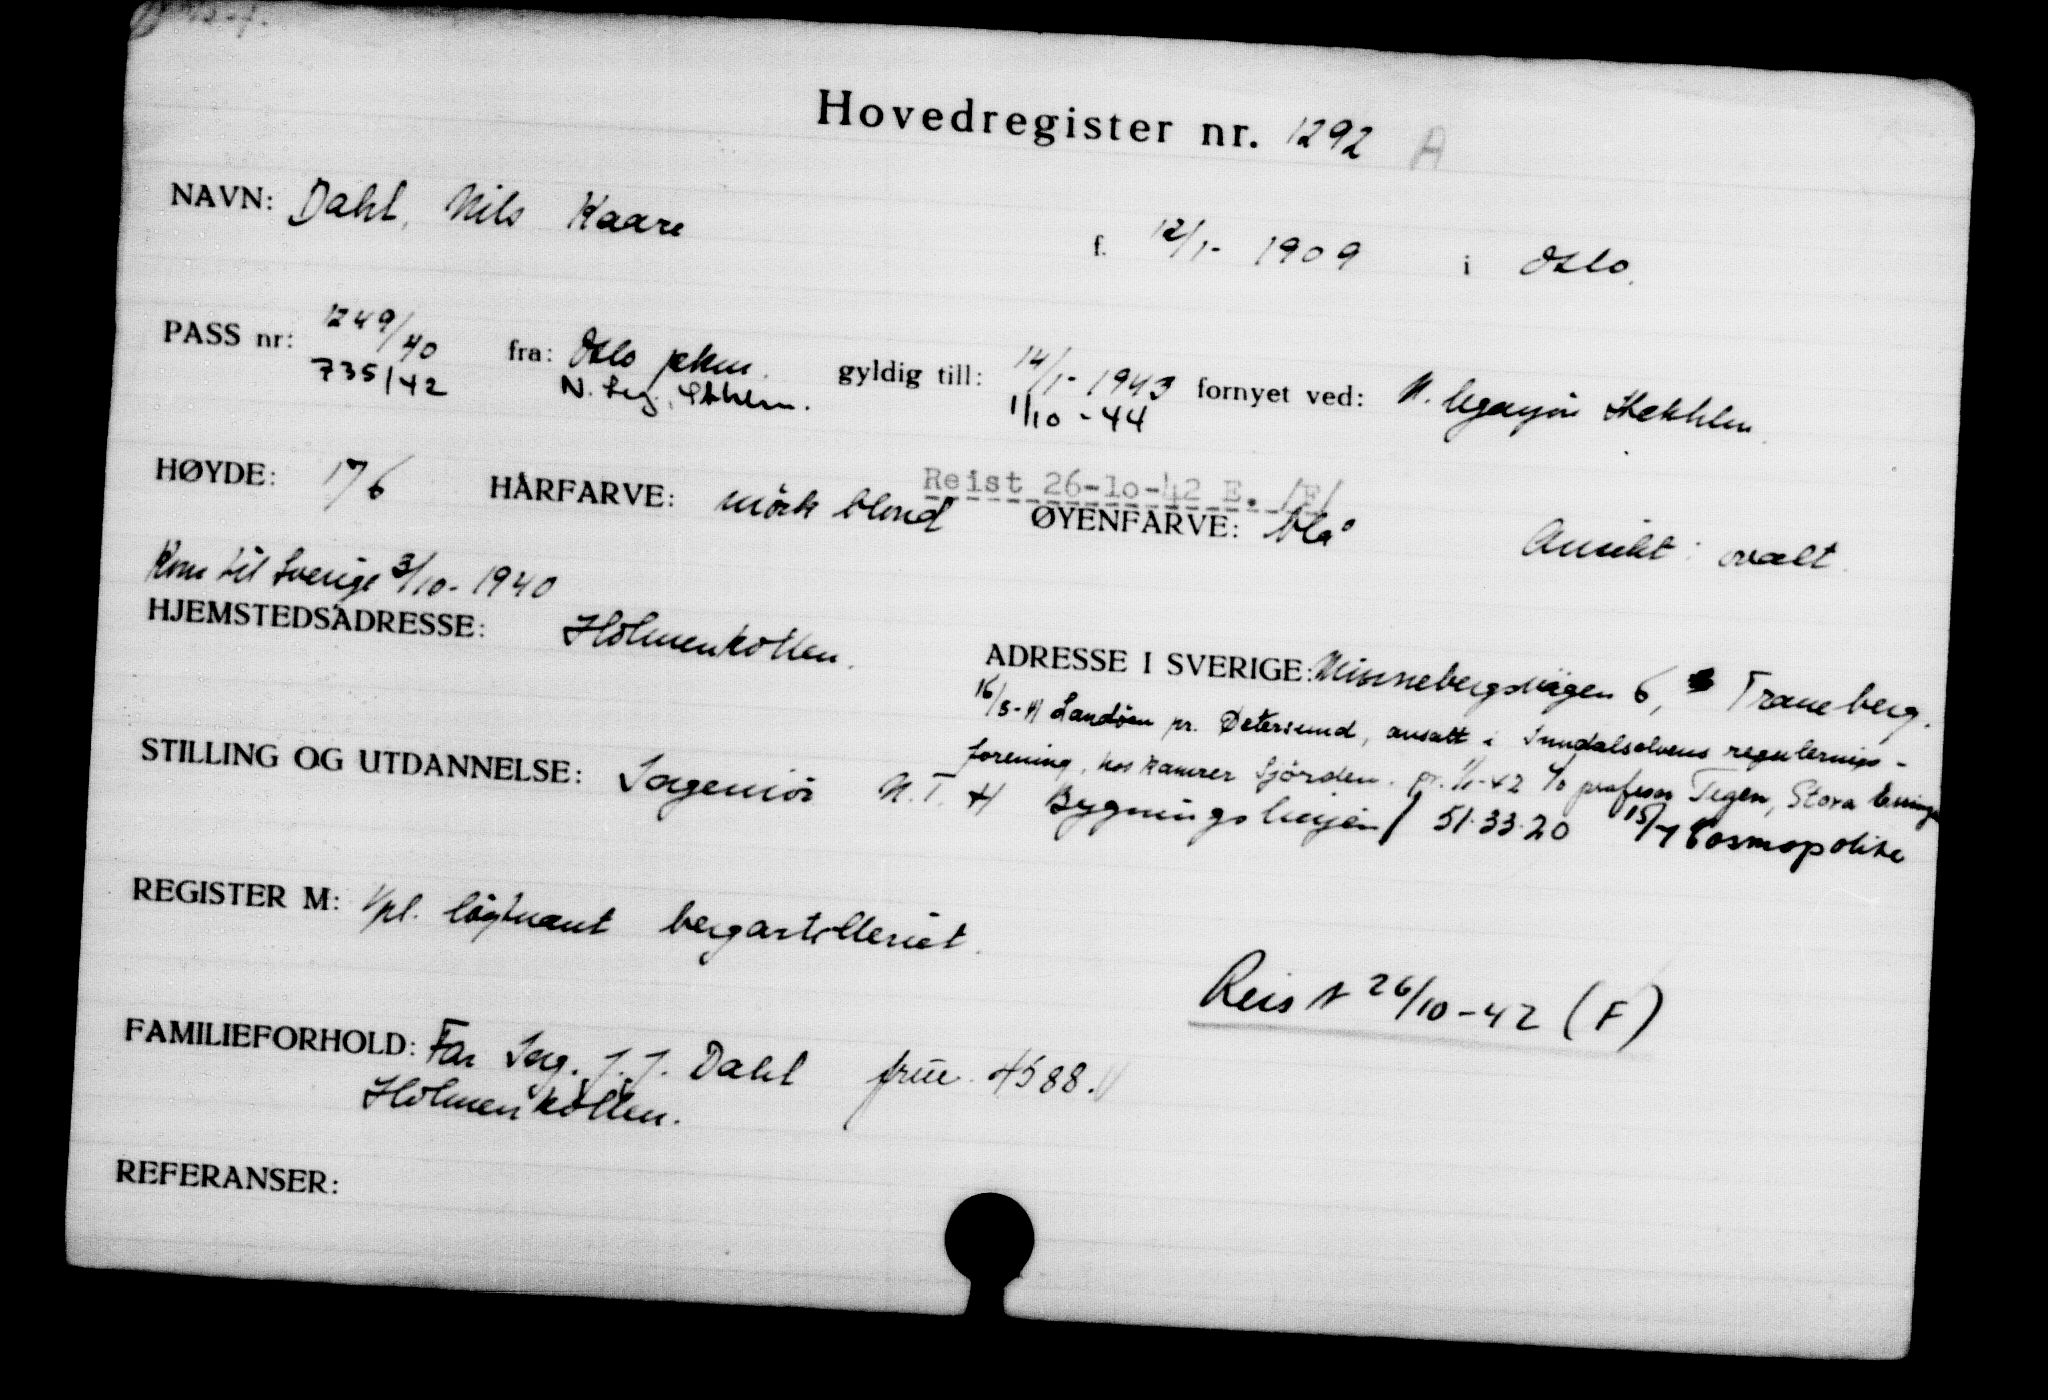 Hovedregister nr. 1292 A
NAVN: Dahl, Nils Kaare f. 12/1- 1909 i Oslo.
PASS nr: 1249/40 fra: Oslo gyldig till: 14/1-1943 fornyet ved: N. legasjon Stockhlm
735/42 N. Leg. Sthlm. 1/10-44
Reist 26-10-42 E. /F/
HØYDE: 176 HÅRFARVE: mørk blond ØYENFARVE: blå Ansikt: ovalt.
Kom til Sverige 3/10-1940
HJEMSTEDSADRESSE: Holmenkollen. ADRESSE I SVERIGE: Minnebergsvägen 6, Traneberg.
Landöen pr. ansatt i regulerings-
forening, hos Kamrer Sjördén. pr. 1/1-42 c/o professor Tegen, Stora
STILLING OG UTDANNELSE: Ingeniør N.T.H Bygningslinjen / 51.33.20 15/4 Cosmopolite
REGISTER M: Vpl. løytnant bergartilleriet.
Reist 26/10-42 (F)
FAMILIEFORHOLD: Far Ing. J. J. Dahl 4588.
Holmenkollen.
REFERANSER: